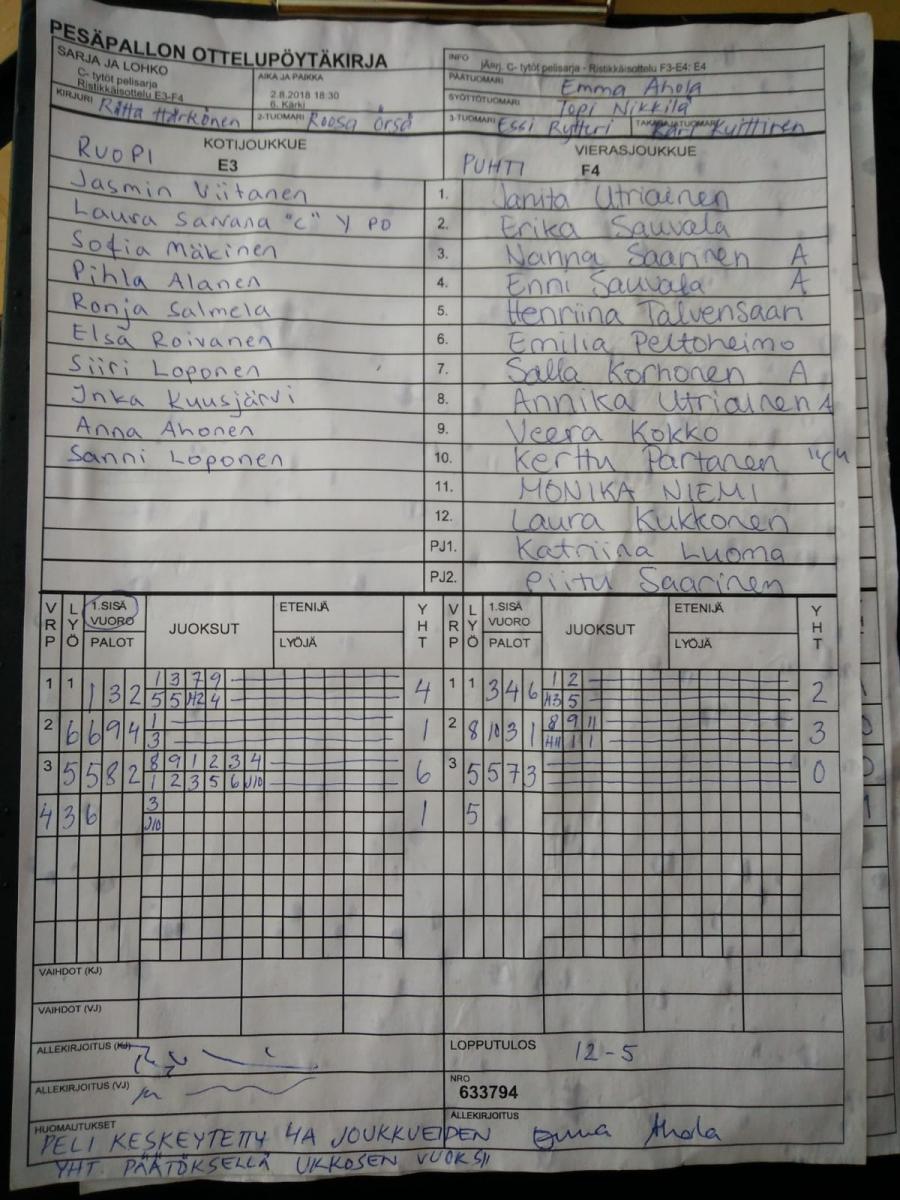 PESÄPALLON OTTELUPÖYTÄKIRJA
SARJA JA LOHKO
C- tytöt pelisarja
Ristikkäisottelu E3-F4
AIKA JA PAIKKA
2.8.2018 18:30
6. Kärki
INFO
jÄsrj. C- tytöt pelisarja - Ristikkäisottelu F3-E4: E4
PÄÄTUOMARI Emma Ahola
SYÖTTÖTUOMARI Topi Nikkilä
KIRJURI Riitta Härkönen
2-TUOMARI Roosa Örså
3-TUOMARI Essi Rytteri
Kari Kyittinen
RUOPI KOTIJOUKKUE
E3
PUHTI VIERASJOUKKUE
F4
Jasmin Viitanen 1. Janita Utriainen
Laura Sarvana "C" Y PD 2. Erika Sauvala
Sofia Mäkinen 3. Nanna Saarinen A
Pihla Alanen 4. Enni Sauvala A
Ronja Salmela 5. Henriina Talvensaari
Elsa Roivanen 6. Emilia Peltoheimo
Siiri Loponen 7. Salla Korhonen A
Inka Kuusjärvi 8. Annika Utriainen A
Anna Ahonen 9. Veera Kokko
Sanni Loponen 10. Kerttu Partanen "C"
11. MONIKA NIEMI
12. Laura Kukkonen
PJ1. Katriina Luoma
PJ2. Piitu Saarinen
VRP LYÖ 1.SISÄ VUORO PALOT JUOKSUT ETENIJÄ LYÖJÄ YHT VRP LYÖ 1.SISÄ VUORO PALOT JUOKSUT ETENIJÄ LYÖJÄ YHT
1 1 1 3 2 1 3 7 9 4 1 1 3 4 6 1 2 2
5 5 H2 4 H3 5
2 6 6 9 4 1 1 2 8 10 3 1 8 9 11 3
3 H11 1 1
3 5 5 8 2 8 9 1 2 3 4 6 3 5 5 7 3 0
1 2 3 5 6 J10
4 3 6 3 1 5
J10
VAIHDOT (KJ)
VAIHDOT (VJ)
ALLEKIRJOITUS (KJ)
LOPPUTULOS 12-5
ALLEKIRJOITUS (VJ)
NRO
633794
HUOMAUTUKSET
ALLEKIRJOITUS
PELI KESKEYTETTY 4A JOUKKUEIDEN Emma Ahola
YHT. PÄÄTÖKSELLÄ UKKOSEN VUOKSI